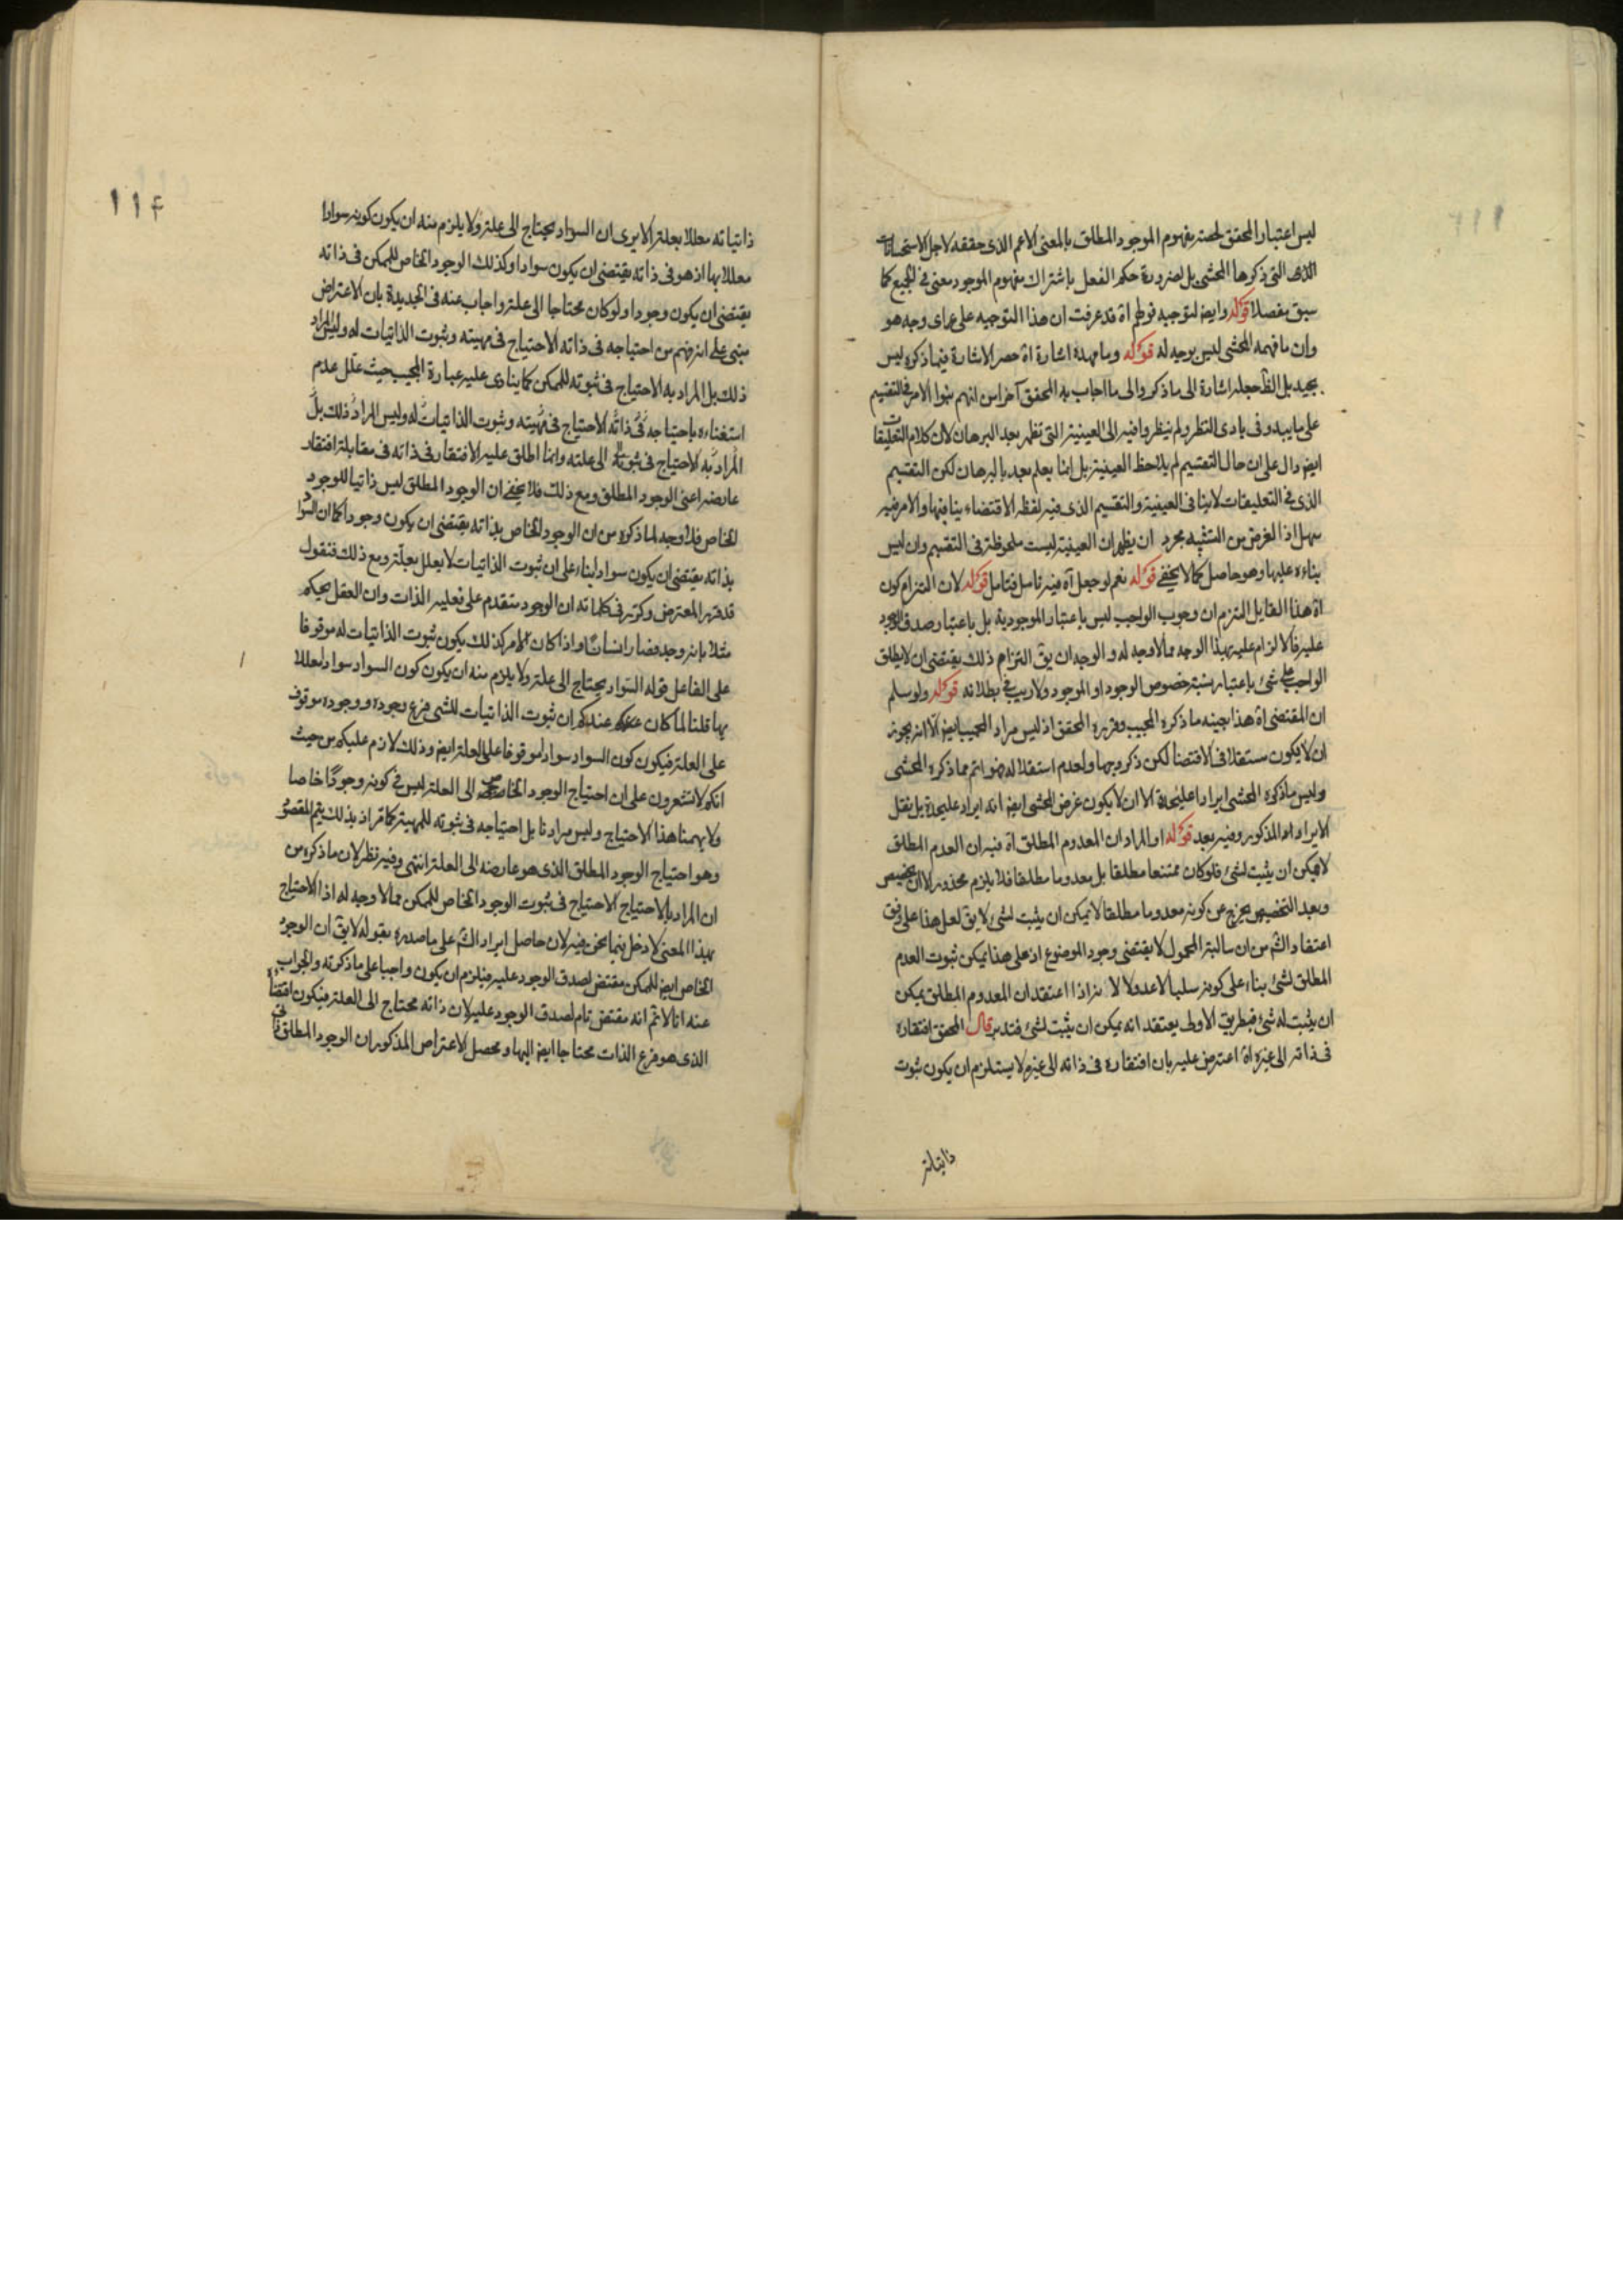 ليس اعتبار المحقق لحصة مفهوم الموجود المطلق بالمعنى الاعم الذى حققه لاجل الاستحسانات
التى ذكرها المحشى بل لضرورة حكم العقل باشتراك مفهوم الموجود معنى فى الجميع كما
سبق مفصلا قوله وايضا لتوجيه قولهم اه قد عرفت ان هذا التوجيه على اى وجه هو
وان ما فهمه المحشى ليس بوجيه له قوله وما مهده اشارة اه حصر الاشارة فيما ذكره ليس
بجيد بل الظ جعله اشارة الى ما ذكر والى ما اجاب به المحقق آخرا من انهم بنوا الامر فى التقسيم
على ما يبدو فى بادى النظر ولم ينظروا فيه الى العينية التى تظهر بعد البرهان لان كلام التعليقات
ايضا دال على ان حال التقسيم لم يلاحظ العينية بل انما يعلم بعد بالبرهان لكن التقسيم
الذى فى التعليقات لا ينافى العينية والتقسيم الذى فيه لفظ الاقتضاء ينافيها والامر فيه
سهل اذ الغرض من التشبيه مجرد ان يظهر ان العينية ليست ملحوظة فى التقسيم وان ليس
بناءه عليها وهو حاصل كما لا يخفى قوله نعم لو جعل اه فيه تامل فتامل قوله لان التزام كون
اه هذا القايل التزم ان وجوب الواجب ليس باعتبار الموجودية بل باعتبار صدق الوجود
عليه فالالزام عليه بهذا الوجه مما لا وجه له والوجه ان يق التزام ذلك يقتضى ان لا يطلق
الواجب على شئ باعتبار نسبة خصوص الوجود او الموجود ولا ريب فى بطلانه قوله ولو سلم
ان المقتضى اه هذا بعينه ما ذكره المجيب وقرره المحقق اذ ليس مراد المجيب ايضا الا انه يجوز
ان لا يكون مستقلا فى الاقتضا لكن ذكر وجها لعدم استقلاله فهو اتم مما ذكره المحشى
وليس ما ذكره المحشى ايرادا عليحدة الا ان لا يكون غرض المحشى ايضا انه ايراد عليحدة بل نقل
الايراد المذكور وفيه بعد قوله او المراد ان المعدوم المطلق اه فيه ان العدم المطلق
لا يمكن ان يثبت لشئ فلو كان ممتنعا مطلقا بل معدوما مطلقا فلا يلزم محذور الا ان يخصص
وبعد التخصيص يخرج عن كونه معدوما مطلقا لا يمكن ان يثبت لشئ لا يق لعل هذا على وفق
اعتقاد الش من ان سالبة المحمول لا يقتضى وجود الموضوع اذ على هذا يمكن ثبوت العدم
المطلق لشئ بناء على كونه سلبا لا عدولا لانه اذا اعتقد ان المعدوم المطلق يمكن
ان يثبت له شئ فبطريق الاولى يعتقد انه يمكن ان يثبت لشئ فتدبر قال المحقق افتقاره
فى ذاته الى غيره اه اعترض عليه بان افتقاره فى ذاته الى غيره لا يستلزم ان يكون ثبوت
ذاتياته
١١٤
ذاتياته معللا بعلة الا يرى ان السواد يحتاج الى علة ولا يلزم منه ان يكون كونه سوادا
معللا بها اذ هو فى ذاته يقتضى ان يكون سوادا وكذلك الوجود الخاص للممكن فى ذاته
يقتضى ان يكون وجودا ولو كان محتاجا الى علة واجاب عنه فى الجديدة بان الاعتراض
مبنى على انه فهم من احتياجه فى ذاته الاحتياج فى مهيته وثبوت الذاتيات له وليس المراد
ذلك بل المراد به الاحتياج فى ثبوته للممكن كما ينادى عليه عبارة المجيب حيث علل عدم
استغناءه باحتياجه فى ذاته الاحتياج فى مهيته وثبوت الذاتيات له وليس المراد ذلك بل
المراد به الاحتياج فى ثبوته الى علته وانما اطلق عليه الافتقار فى ذاته فى مقابلة افتقار
عارضه اعنى الوجود المطلق ومع ذلك فلا يخفى ان الوجود المطلق ليس ذاتيا للوجود
الخاص فلا وجه لما ذكره من ان الوجود الخاص بذاته يقتضى ان يكون وجودا كما ان السواد
بذاته يقتضى ان يكون سوادا بناء على ان ثبوت الذاتيات لا يعلل بعلة ومع ذلك فنقول
قد قرر المعترض وكرر فى كلماته ان الوجود متقدم على فعلية الذات وان العقل يحكم
مثلا بانه وجد فصار انسانا واذا كان الامر كذلك يكون ثبوت الذاتيات له موقوفا
على الفاعل قوله السواد يحتاج الى علة ولا يلزم منه ان يكون كون السواد سوادا معللا
بها قلنا لما كان عندكم ان ثبوت الذاتيات للشى فرع وجوده ووجوده موقوف
على العلة فيكون كون السواد سوادا موقوفا على العلة ايضا وذلك لازم عليكم من حيث
انكم لا تشعرون على ان احتياج الوجود الخاص الى العلة ليس فى كونه وجودا خاصا
ولا يهمنا هذا الاحتياج وليس مرادنا بل احتياجه فى ثبوته للمهية كما قرر اذ بذلك يتم المقصود
وهو احتياج الوجود المطلق الذى هو عارضه الى العلة انتهى وفيه نظر لان ما ذكره من
ان المراد بالاحتياج الاحتياج فى ثبوت الوجود الخاص للممكن مما لا وجه له اذ الاحتياج
بهذا المعنى لا دخل فيما نحن فيه لان حاصل ايراد الش على ما صدره بقوله لا يق ان الوجود
الخاص ايضا للممكن مقتض لصدق الوجود عليه فيلزم ان يكون واجبا على ما ذكرته والجواب
عنه انا لا نم انه مقتض تام لصدق الوجود عليه لان ذاته محتاج الى العلة فيكون اقتضاء
الذى هو فرع الذات محتاجا ايضا اليها ومحصل الاعتراض المذكور ان الوجود المطلق